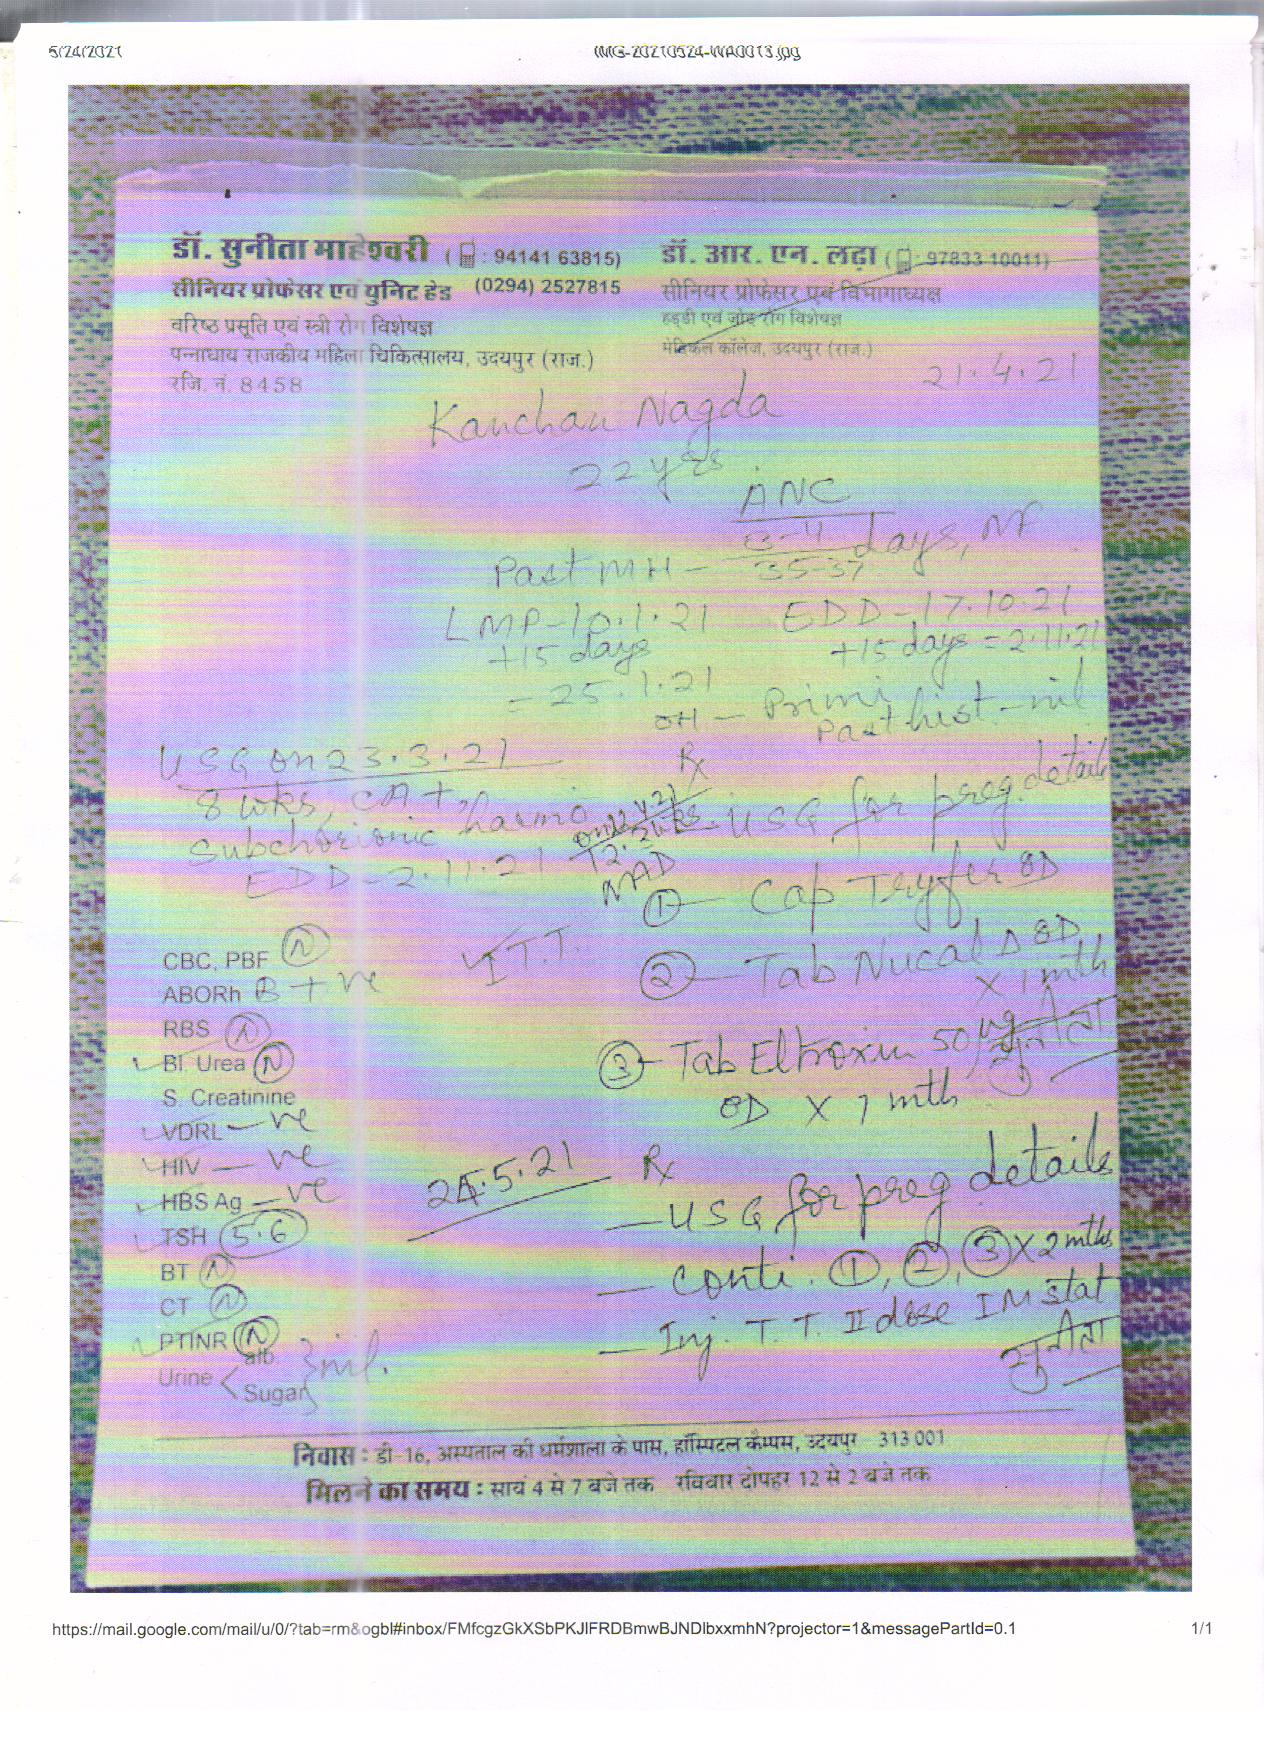 5/24/2021 IMG-20210524-WA0013.jpg
डॉ. सुनीता माहेश्वरी ( : 94141 63815)
सीनियर प्रोफेसर एवं युनिट हेड (0294) 2527815
वरिष्ठ प्रसूति एवं स्त्री रोग विशेषज्ञ
पन्नाधाय राजकीय महिला चिकित्सालय, उदयपुर (राज.)
रजि. नं. 8458
डॉ. आर. एन. लढ़ा ( : 97833 10011)
सीनियर प्रोफेसर एवं विभागाध्यक्ष
हड्डी एवं जोड़ रोग विशेषज्ञ
मेडिकल कॉलेज, उदयपुर (राज.)
21.4.21
Kanchan Nagda
22 yrs
ANC
Past MH - 3-4/35-37 days, NF
LMP-10.1.21 EDD-17.10.21
+15 days +15 days = 2.11.21
= 25.1.21
OH - Primi
Past hist. - nil
USG on 23.3.21
8 wks, CA+,
Subchorionic haemo
EDD-2.11.21
NAD
Rx
USG for preg. details
① Cap Tryfer OD
② Tab Nucal D OD
X 1 mth
③ Tab Eltroxin 50 µg
OD X 1 mth
सुनीता
I T.T.
CBC, PBF N
ABORh B+ve
RBS N
Bl. Urea N
S. Creatinine
VDRL -ve
HIV -ve
HBS Ag -ve
TSH 5.6
BT N
CT N
PTINR N
Urine < alb. Sugar } nil.
24.5.21
Rx
- USG for preg details
- Conti. ①, ②, ③ X 2 mths
- Inj. T.T. II dose IM stat
सुनीता
निवास : डी-16, अस्पताल की धर्मशाला के पास, हॉस्पिटल कैम्पस, उदयपुर 313 001
मिलने का समय : सायं 4 से 7 बजे तक रविवार दोपहर 12 से 2 बजे तक
https://mail.google.com/mail/u/0/?tab=rm&ogbl#inbox/FMfcgzGkXSbPKJlFRDBmwBJNDlbxxmhN?projector=1&messagePartId=0.1 1/1